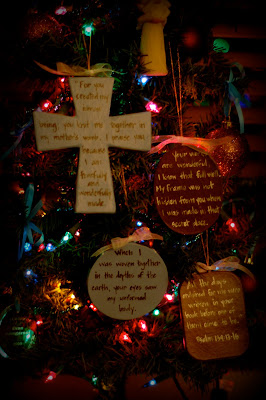 "For you
created my
inmost
being; you knit me together in
my mother's womb. I praise you
because
I am
fearfully
and
wonderfully
made.
Your works
are wonderful
I know that full well.
My frame was not
hidden from you when
I was made in that
secret place.
When I
was woven together
in the depths of the
earth, your eyes saw
my unformed
body.
All the days
ordained for me were
written in your
book before one of
them came to be.
Psalm 139:13-16